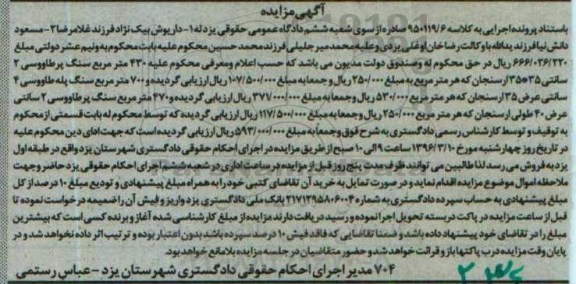 آگهی مزایده
باستناد پرونده اجرایی به کلاسه ۹۵۰۱۱۹/۶ صادره از سوی شعبه ششم دادگاه عمومی حقوقی یزد له ۱- داریوش بیک نژاد فرزند غلامرضا ۲- مسعود
دانش نیا فرزند یدالله با وکالت رضا خان اوغلی یزدی و علیه محمد میر جلیلی فرزند محمد حسین محکوم علیه بابت محکوم به و نیم عشر دولتی مبلغ
۶۶۶/۰۳۶/۲۲۰ ریال در حق محکوم له و صندوق دولت مدیون می باشد که حسب اعلام و معرفی محکوم علیه ۴۳۰ متر مربع سنگ پرطاووسی ۲
سانتی ۳۵*۳۵ ارسنجان که هر متر مربع به مبلغ ۲۵۰/۰۰۰ ریال و جمعا به مبلغ ۱۰۷/۵۰۰/۰۰۰ ریال ارزیابی گردیده و ۷۰۰ متر مربع سنگ پله طاووسی ۴
سانتی عرض ۳۵ ارسنجان که هر متر مربع ۵۳۰/۰۰۰ ریال و جمعا به مبلغ ۳۷۷/۰۰۰/۰۰۰ ریال ارزیابی گردیده و ۴۷۰ متر مربع سنگ پرطاووسی ۲ سانتی
عرض ۴۰ طولی ارسنجان که هر متر مربع ۲۵۰/۰۰۰ ریال و جمعا به مبلغ ۱۱۷/۵۰۰/۰۰۰ ریال ارزیابی گردیده که توسط محکوم له بابت قسمتی از محکوم
به توقیف و توسط کارشناس رسمی دادگستری به شرح فوق و جمعا به مبلغ ۵۹۳/۰۰۰/۰۰۰ ریال ارزیابی گردیده است که جهت ادای دین محکوم علیه
در تاریخ روز چهارشنبه مورخ ۱۳۹۶/۳/۱۰ ساعت ۹ الی ۱۰ صبح از طریق مزایده در اجرای احکام حقوقی دادگستری شهرستان یزد واقع در طبقه اول
یزد به فروش می رسد لذا طالبین می توانند ظرف مدت پنج روز قبل از مزایده در ساعت اداری در شعبه ششم اجرای احکام حقوقی یزد حاضر و جهت
ملاحظه اموال موضوع مزایده اقدام نماید و در صورت تمایل به خرید آن تقاضای کتبی خود را به همراه مبلغ پیشنهادی و تودیع مبلغ ۱۰ درصد از کل
مبلغ پیشنهادی به حساب سپرده دادگستری به شماره ۲۱۷۱۲۹۵۸۰۶۰۰۴ بانک ملی دادگستری یزد واریز و فیش آن را ضمیمه درخواست نموده تا
قبل از ساعت مزایده در پاکت دربسته تحویل اجرا نموده و رسید دریافت دارند مزایده از مبلغ کارشناسی شده آغاز و برنده کسی است که بیشترین
مبلغ را در تقاضای خود پیشنهاد داده باشد و ضمنا تقاضایی که فاقد فیش ۱۰ درصد سپرده باشد بدون اعتبار بوده و ترتیب اثر داده نخواهد شد و در
پایان وقت مزایده درب پاکتها باز و قرائت خواهد شد و حضور متقاضیان در جلسه مزایده بلامانع خواهد بود.
۷۰۴ مدیر اجرای احکام حقوقی دادگستری شهرستان یزد - عباس رستمی